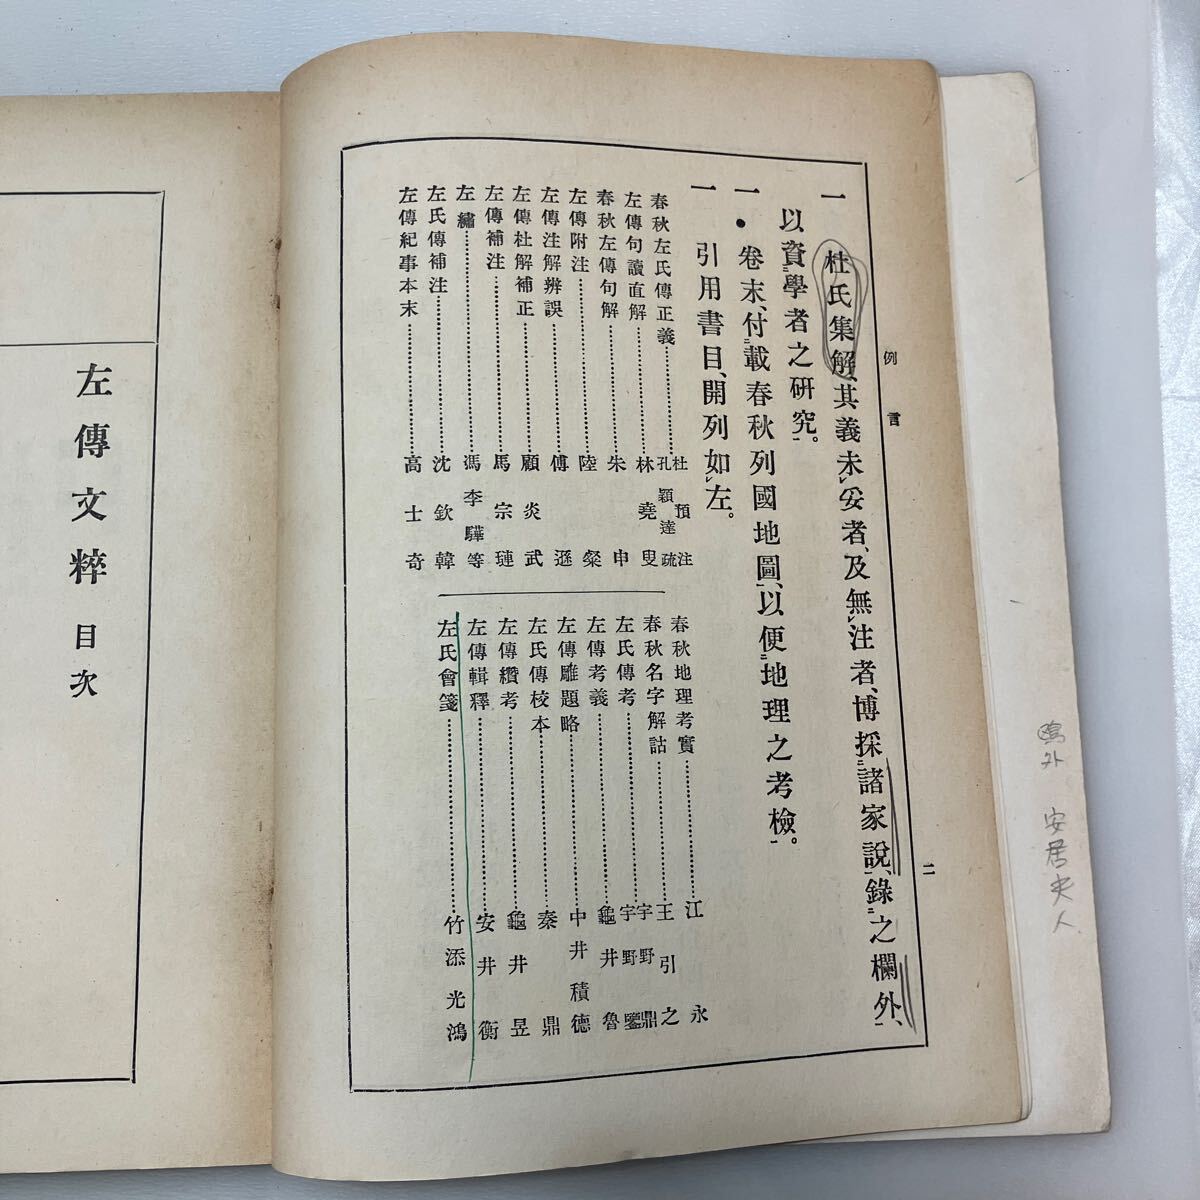 例言
二
一 杜氏集解、其義未レ妥者、及無レ注者、博採二諸家說一、錄二之欄外一、
以資二學者之研究一。
一・卷末、付二載春秋列國地圖一、以便二地理之考檢一。
一 引用書目、開列如レ左。
春秋左氏傳正義 杜預注 孔穎達疏
左傳句讀直解 林堯叟
春秋左傳句解 朱申
左傳附注 陸粲
左傳注解辨誤 傅遜
左傳杜解補正 顧炎武
左傳補注 馬宗璉
左繡 馮李驊等
左氏傳補注 沈欽韓
左傳紀事本末 高士奇
春秋地理考實 江永
春秋名字解詁 王引之
左氏傳考 宇野鼎 宇野鑒
左傳考義 龜井魯
左傳雕題略 中井積德
左氏傳校本 秦鼎
左傳纘考 龜井昱
左傳輯釋 安井衡
左氏會箋 竹添光鴻
左傳文粹 目次
鷗外 安居夫人